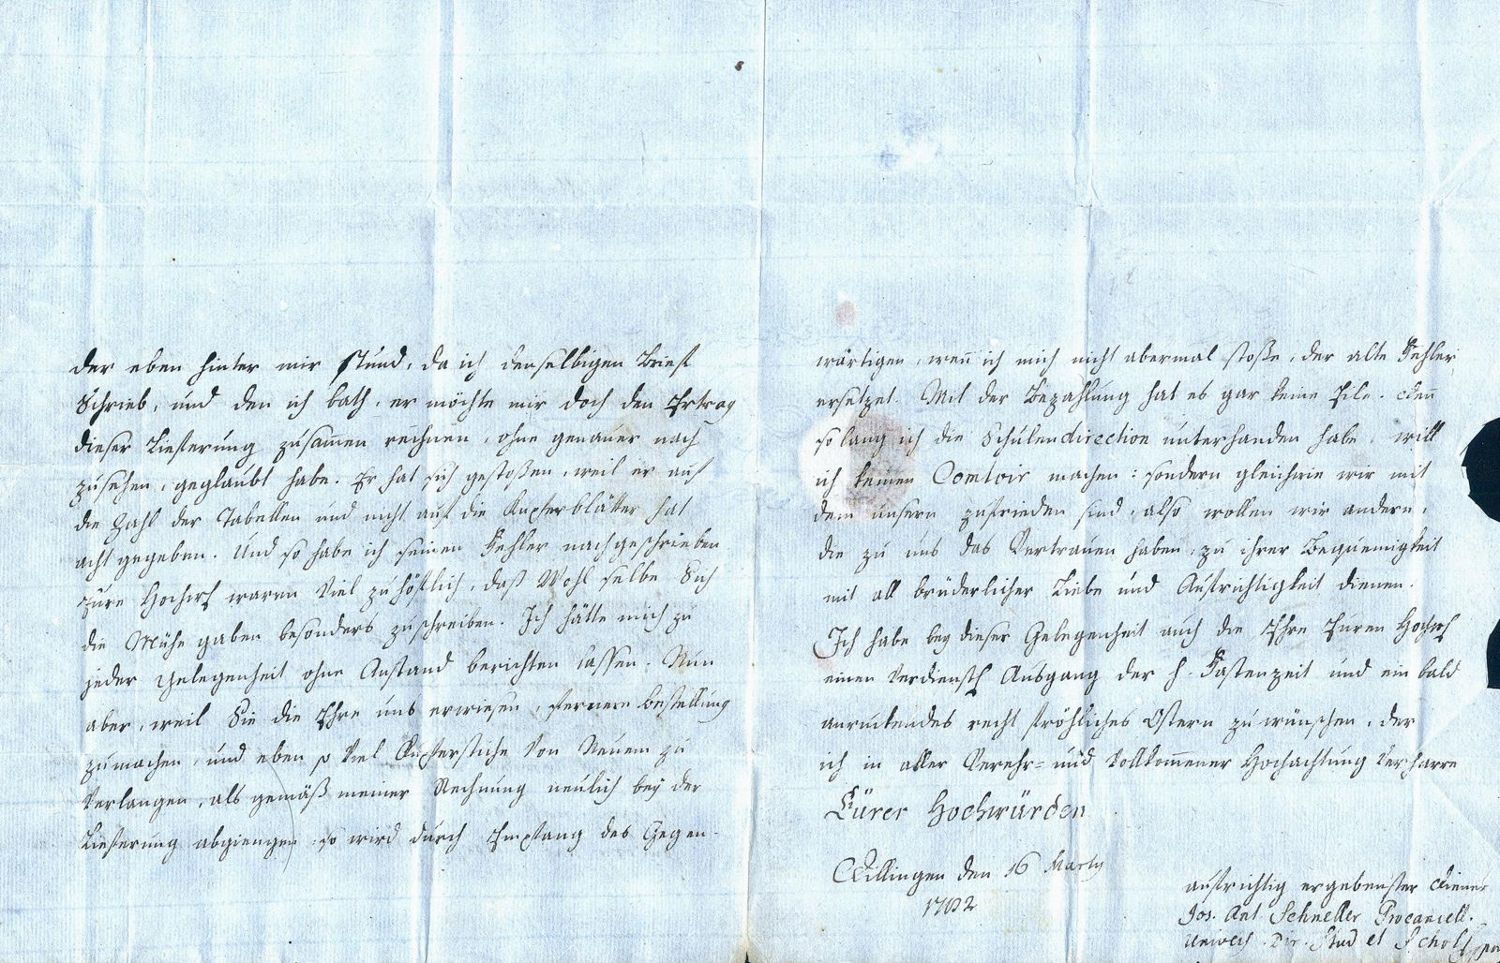 der eben hinter mir stund, da ich denselbigen Brief
schrieb, und den ich bath, er möchte mir doch den Ertrag
dieser Lieferung zusamen rechnen, ohne genauer nach
zusehen, geglaubt habe. Er hat sich gestoßen, weil er auf
die Zahl der Tabellen und nicht auf die Kupferblätter hat
acht gegeben. Und so habe ich seinen Fehler nachgeschrieben
Eure Hochw waren viel zu höflich, daß Wohl selbe Sich
die Mühe gaben besonders zu schreiben. Ich hätte mich zu
jeder Gelegenheit ohne Anstand berichten lassen. Nun
aber, weil Sie die Ehre uns erwiesen, fernere bestellung
zumachen, und eben so viel Kupferstiche von Neuem zu
verlangen, als gemäß meiner Rechnung neulich bey der
Lieferung abgiengen, so wird durch Empfang des Gegen-
wärtigen, wenn ich mich nicht abermal stoße, der alte Fehler
ersetzet. Mit der Bezahlung hat es gar keine Eile. Denn
so lang ich die Schulendirection unterhanden habe, will
ich keinen Comtoir machen: sondern gleichwie wir mit
dem unsern zufrieden sind, also wollen wir andern,
die zu uns das Vertrauen haben, zu ihrer Bequemigkeit
mit all brüderlicher Liebe und Aufrichtigkeit dienen.
Ich habe bey dieser Gelegenheit auch die Ehre Euren Hochw
einen verdienstl Ausgang der h. Fastenzeit und ein bald
anruckendes recht fröhliches Ostern zu wünschen, der
ich in aller Verehr= und vollkommener Hochachtung verharre
Eürer Hochwürden
Dillingen den 16 Marty
1782
aufrichtig ergebenster Diener
Jos. Ant Schneller Procancell.
Univers. Dir. Stud et Schol